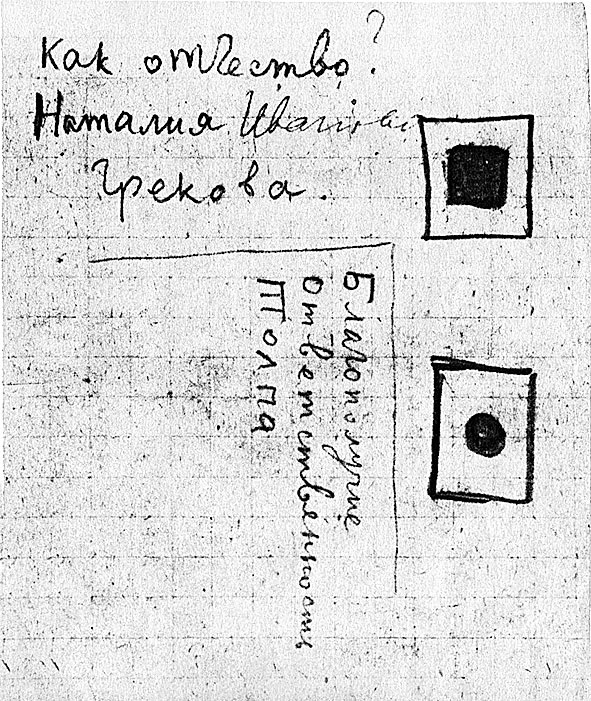 Как отчество?
Наталия Иван
Грекова.
Благополучие
Ответственность
Толпа